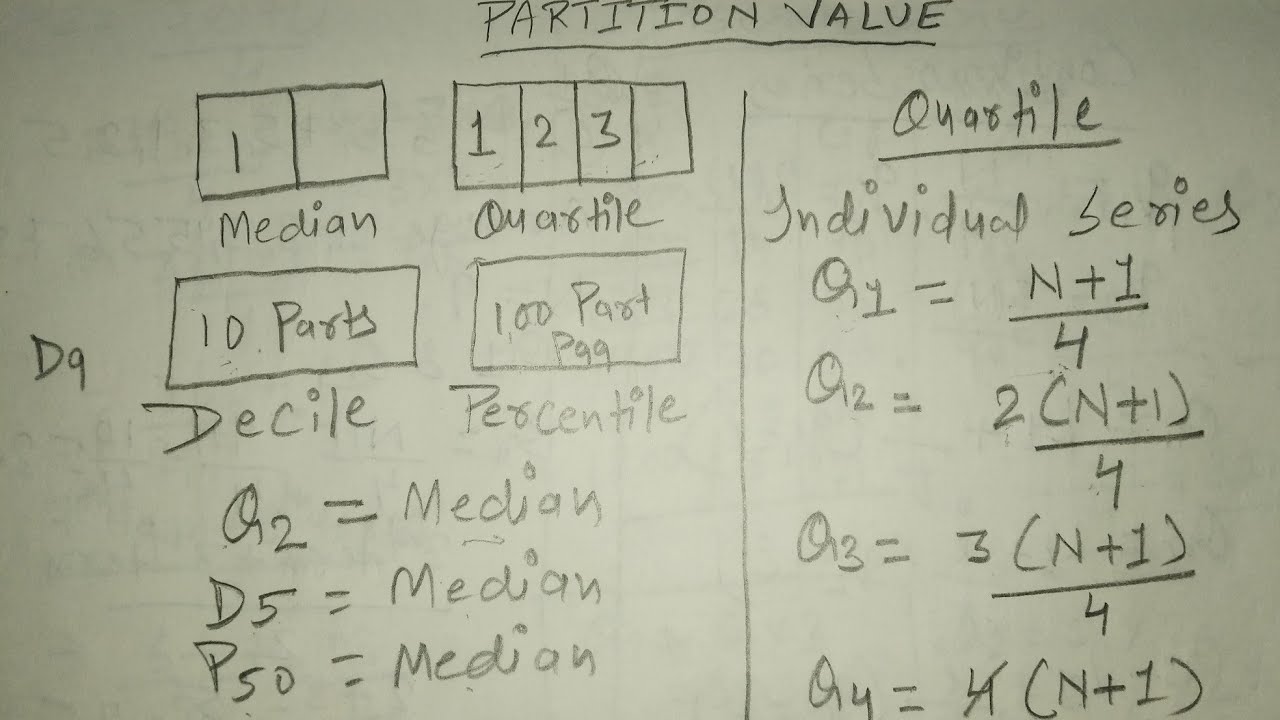 PARTITION VALUE
1
Median
1 2 3
Quartile
10 Parts
Decile
D9
100 Part
P99
Percentile
Q2 = Median
D5 = Median
P50 = Median
Quartile
Individual Series
Q1 = N+1
4
Q2 = 2(N+1)
4
Q3 = 3(N+1)
4
Q4 = 4(N+1)